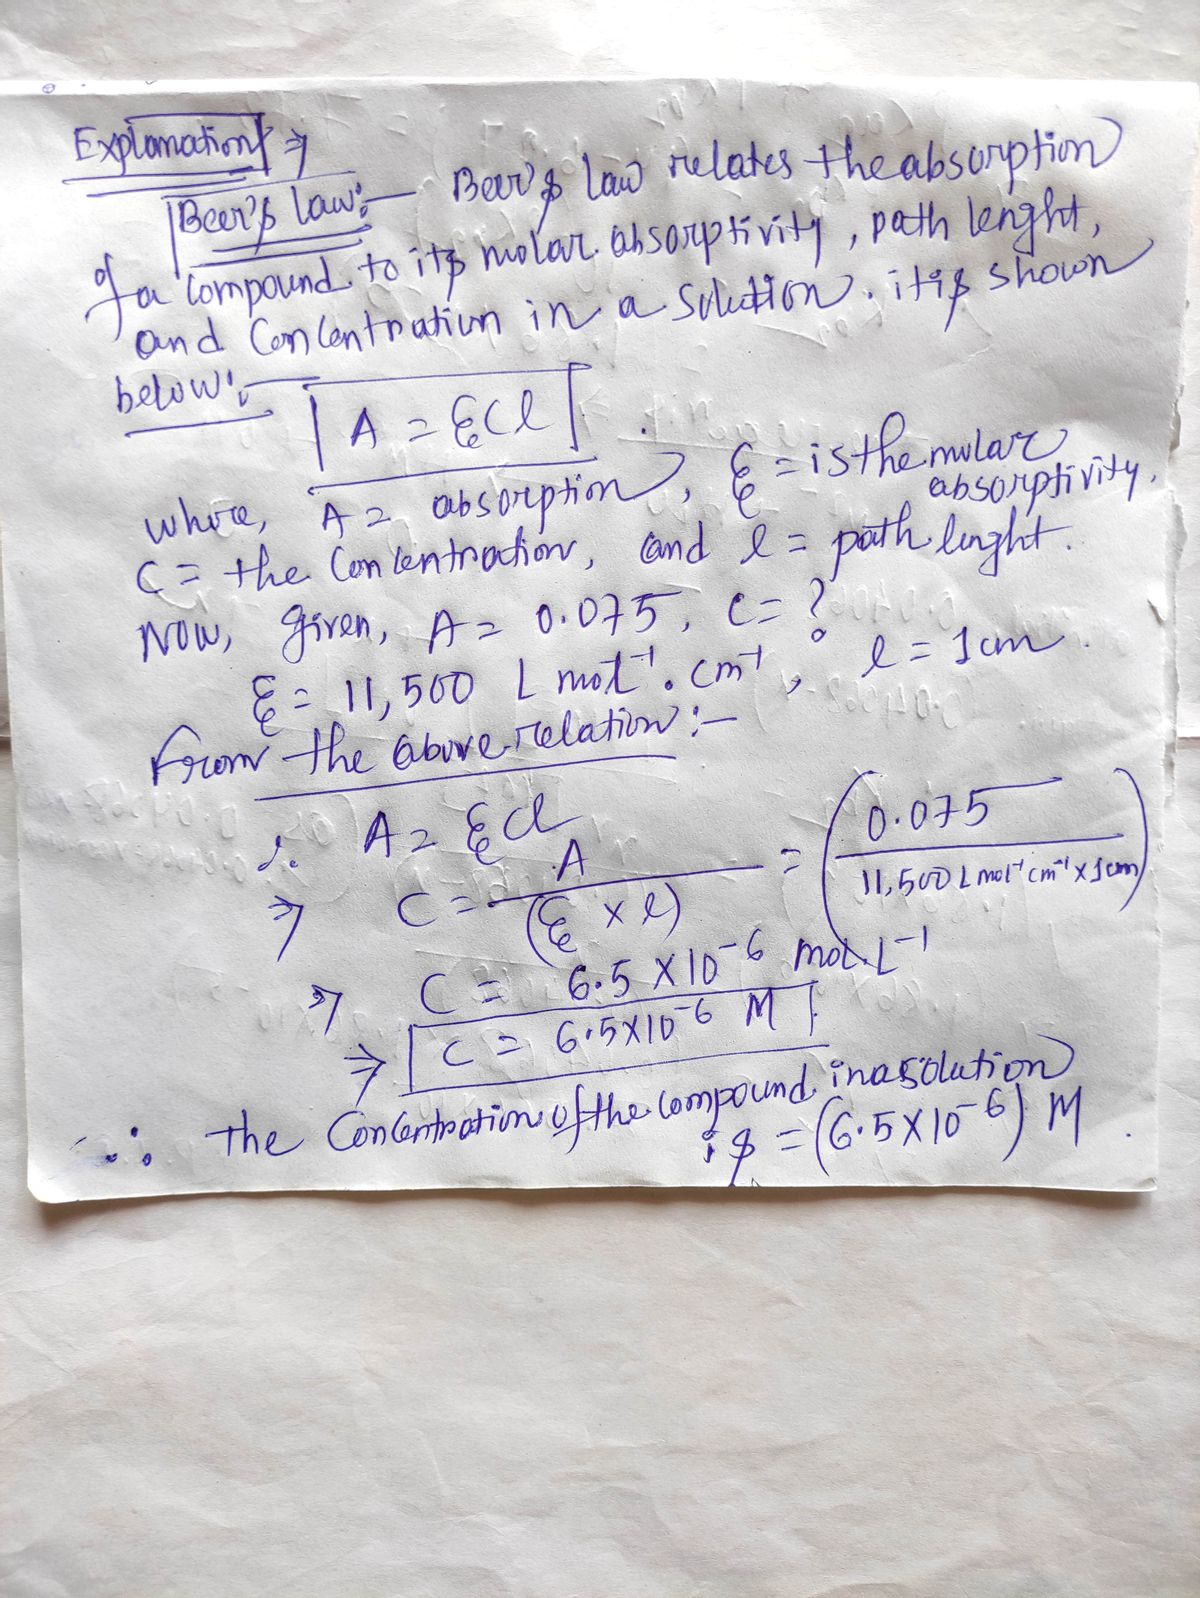 Explanation ⇒
Beer's law:- Beer's law relates the absorption
of a compound to its molar absorptivity, path lenght,
and Concentration in a solution. it is shown
below:-
A = ξCl
where, A = absorption, ξ = is the molar
absorptivity,
C = the Concentration, and l = path lenght.
Now, given, A = 0.075, C = ?
ξ = 11,500 L mol⁻¹. cm⁻¹, l = 1cm.
From the above relation:-
∴ A = ξCl
⇒ C = A/(ξ x l) = (0.075/11,500 L mol⁻¹ cm⁻¹ x 1cm)
⇒ C = 6.5 X 10⁻⁶ mol.L⁻¹
⇒ C = 6.5X10⁻⁶ M
∴ The Concentration of the compound in a solution
is = (6.5X10⁻⁶) M.